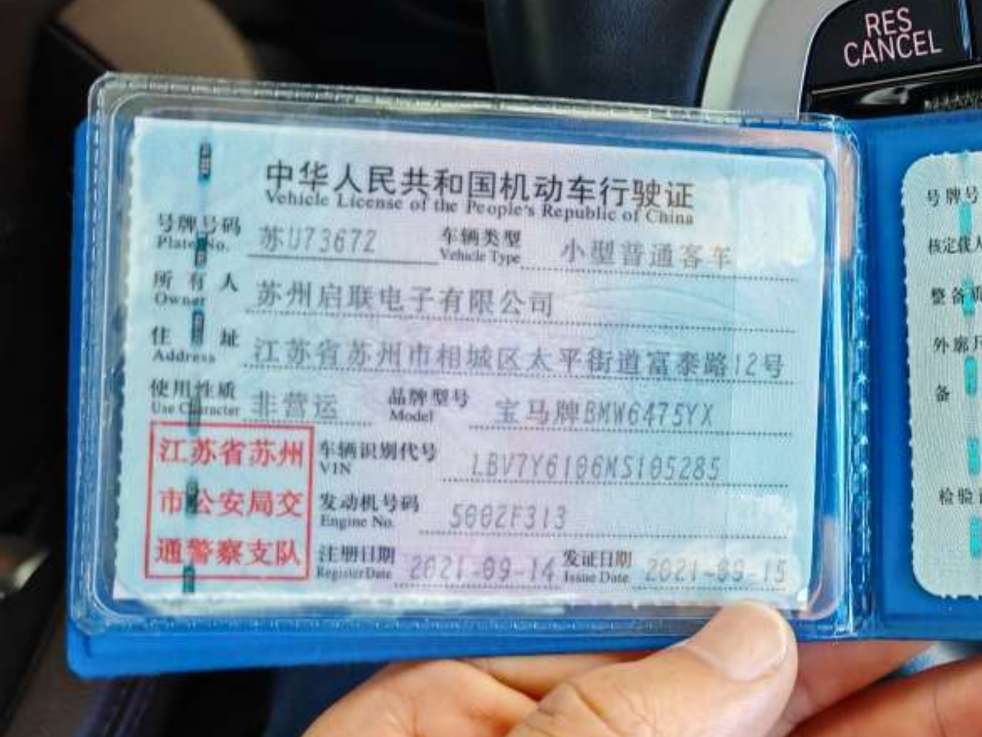 RES
CANCEL
中华人民共和国机动车行驶证
Vehicle License of the People's Republic of China
号牌号码 苏U73672 车辆类型 小型普通客车
Plate No. Vehicle Type
所有人 苏州启联电子有限公司
Owner
住址 江苏省苏州市相城区太平街道富泰路12号
Address
使用性质 非营运 品牌型号 宝马牌BMW6475YX
Use Character Model
江苏省苏州
市公安局交
通警察支队
车辆识别代号 LBV7Y6106MS105285
VIN
发动机号码 5002F313
Engine No.
注册日期 2021-09-14 发证日期 2021-09-15
Register Date Issue Date
号牌号
核定载人
整备质
外廓尺
备
检验